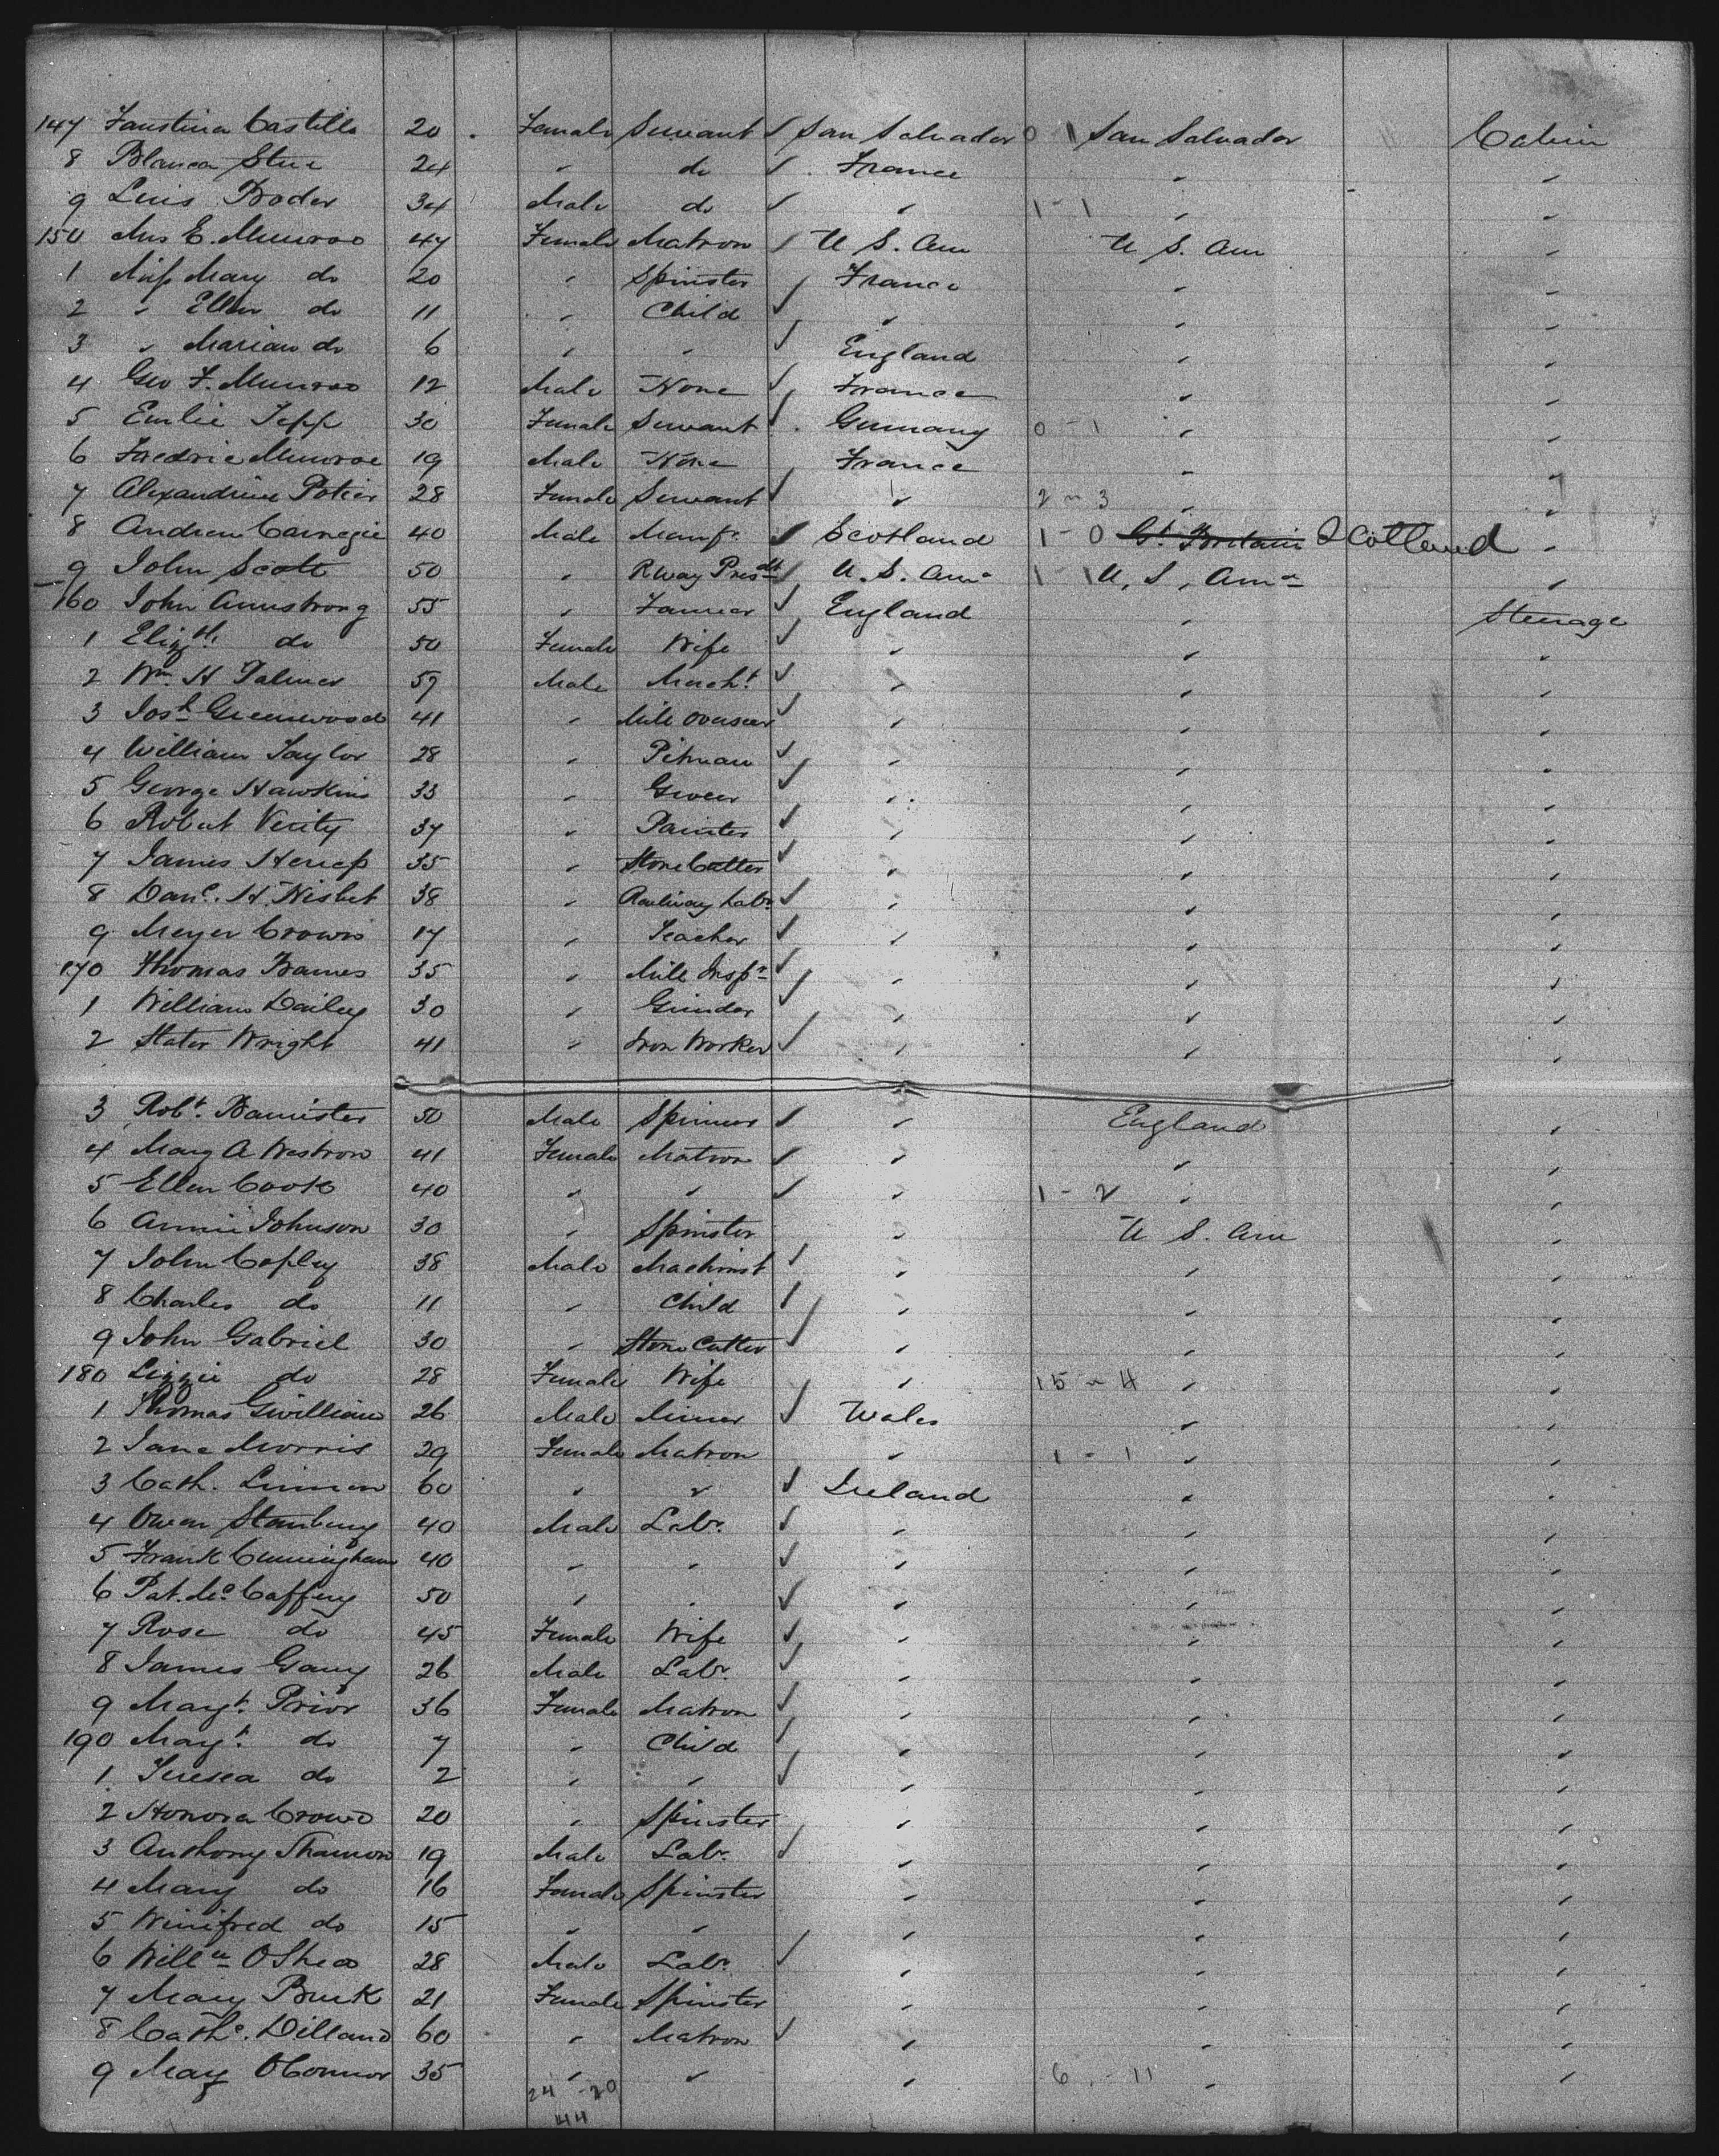 147 Faustina Castillo 20 Female Servant ✓ San Salvador 0 1 San Salvador Cabin
8 Blanca 24 " do ✓ France " "
9 Luis 34 Male do ✓ " 1 - 1 " "
150 Mrs E. Munroe 47 Female Matron ✓ U S. Am U S. Am "
1 Miss Mary do 20 " Spinster ✓ France " "
2 " Ellen do 11 " Child ✓ " " "
3 " Marian do 6 " " ✓ England " "
4 Geo F. Munroe 12 Male None ✓ France " "
5 Emlie Jepp 30 Female Servant ✓ Germany 0 - 1 " "
6 Fredric Munroe 19 Male None ✓ France " "
7 Alexandrine Potier 28 Female Servant ✓ " 2 ~ 3 " "
8 Andrew Carnegie 40 Male Manfr. ✓ Scotland 1 - 0 Gt. Britain Scotland "
9 John Scott 50 " RWay Presdt ✓ U. S. Ama 1 - 1 U. S. Ama "
160 John Armstrong 55 " Farmer ✓ England " Steerage
1 Elizth. do 50 Female Wife ✓ " " "
2 Wm. H Palmer 59 Male Macht. ✓ " " "
3 Josh Greenwood 41 " Mill Overseer ✓ " " "
4 William Taylor 28 " Pitman ✓ " " "
5 George Hawkins 33 " Grocer ✓ " " "
6 Robert Verity 37 " Painter ✓ " " "
7 James 35 " Stone Cutter ✓ " " "
8 Danl. H. Nisbet 38 " Railway Labr. ✓ " " "
9 Meyer Crown 17 " Teacher ✓ " " "
170 Thomas Barnes 35 " Mill Inspr ✓ " " "
1 William Dailey 30 " Grinder ✓ " " "
2 Slater Wright 41 " Iron Worker ✓ " " "
3 Robt. Bannister 50 Male Spinner ✓ " England "
4 Mary A Westron 41 Female Matron ✓ " " "
5 Ellen Cook 40 " " ✓ " 1 - 2 " "
6 Annie Johnson 30 " Spinster " U S. Am "
7 John Copley 38 Male Machinist ✓ " " "
8 Charles do 11 " Child ✓ " " "
9 John Gabriel 30 " Stone Cutter ✓ " " "
180 Lizzie do 28 Female Wife " 15 ~ 4 " "
1 Thomas Gwilliam 26 Male Miner ✓ Wales " "
2 Jane Morris 29 Female Matron " 1 - 1 " "
3 Cath. 60 " " ✓ Ireland " "
4 Owen Stanbury 40 Male Labr. ✓ " " "
5 Frank Cunningham 40 " " ✓ " " "
6 Pat. Mc. Caffery 50 " " ✓ " " "
7 Rose do 45 Female Wife ✓ " " "
8 James 26 Male Labr. ✓ " " "
9 Margt. Prior 36 Female Matron ✓ " " "
190 Margt. do 7 " Child ✓ " " "
1 Teresea do 2 " " ✓ " " "
2 Honora Crowd 20 " Spinster " " "
3 Anthony Shannon 19 Male Labr. ✓ " " "
4 Mary do 16 Female Spinster " " "
5 Winifred do 15 " " " " "
6 Willm OShea 28 Male Labr. ✓ " " "
7 Mary Burk 21 Female Spinster " " "
8 Cathe. Dilland 60 " Matron ✓ " " "
9 Mary OConnor 35 " " " 6 - 11 " "
24 - 20
44